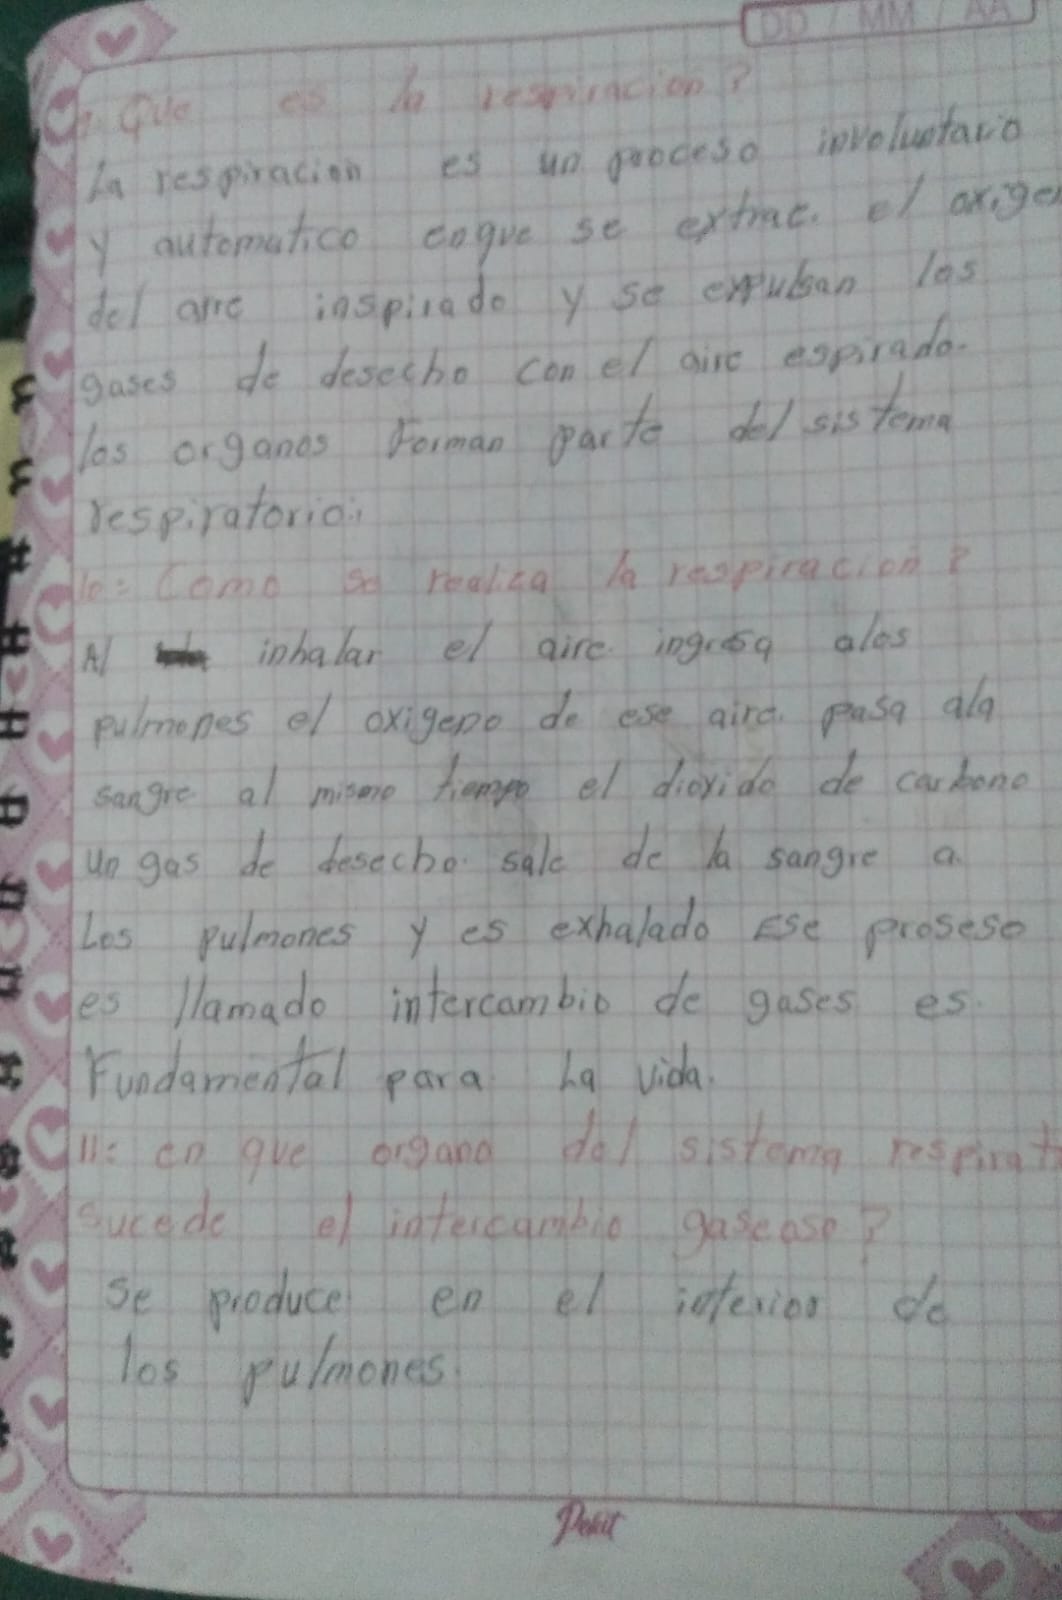 DD / MM / AA
Que es la respiracion?
La respiracion es un proceso involuntario
y automatico enque se extrae. el oxige
del aire inspirado y se expulsan los
gases de desecho con el aire espirado.
los organos Forman parte del sistema
respiratorio:
10= Como se realiza la respiracion?
Al inhalar el aire ingresa alos
pulmones el oxigeno de ese aire. pasa ala
sangre al mismo tiempo el dioxido de carbono
un gas de desecho. sale de la sangre a
Los pulmones y es exhalado Ese proseso
es llamado intercambio de gases es.
Fundamental para La vida.
11: en que organo del sistema respirat
sucede el intercambio gaseoso?
Se produce en el interior de
los pulmones.